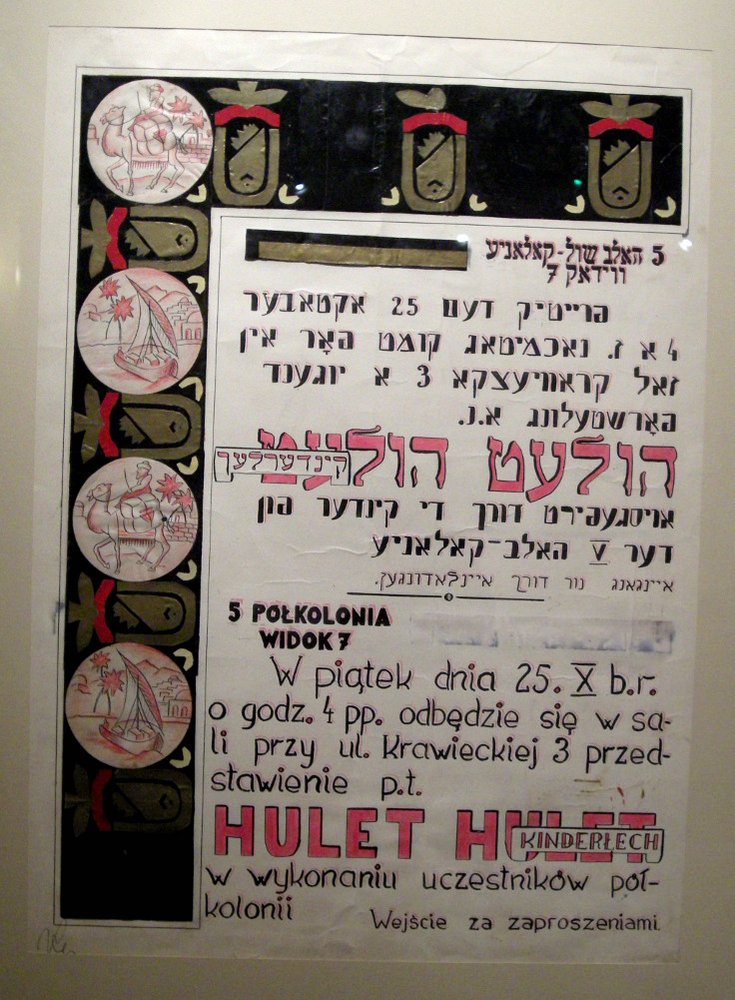 5 האלב שול-קאלאניע
ווידאק 7
פרייטיק דעם 25 אקטאבער
4 א ז. נאכמיטאג קומט פאָר אין
זאל קראוויעצקא 3 א יוגענד
פאָרשטעלונג א.נ.
הולעט הולעט
קינדערלעך
אויסגעפירט דורך די קינדער פון
דער V האלב-קאלאניע
איינגאנג נור דורך איינלאדונגען.
5 PÓŁKOLONIA
WIDOK 7
W piątek dnia 25. X b.r.
o godz. 4 pp. odbędzie się w sa-
li przy ul. Krawieckiej 3 przed-
stawienie p.t.
HULET HULET
KINDERŁECH
w wykonaniu uczestników pół-
kolonii
Wejście za zaproszeniami.